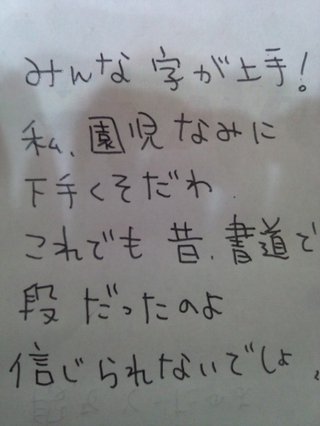 みんな字が上手!
私、園児なみに
下手くそだわ
これでも昔、書道で
段だったのよ
信じられないでしょ、